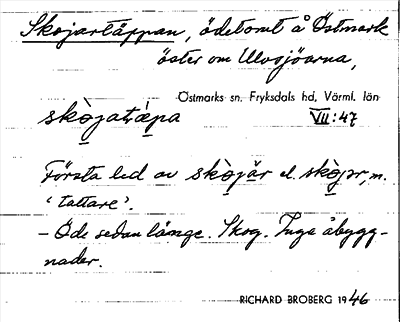 Skojartäppan, ödetomt å Östmark
öster om Ulvsjöarna,
Östmarks sn, Fryksdals hd, Värml. län
skò̬jatä̀pa VII:47
Första led av skò̬jär el. skò̬jər, m.
'tattare'.
– Öde sedan länge. Skog. Inga åbygg-
nader.
RICHARD BROBERG 1946